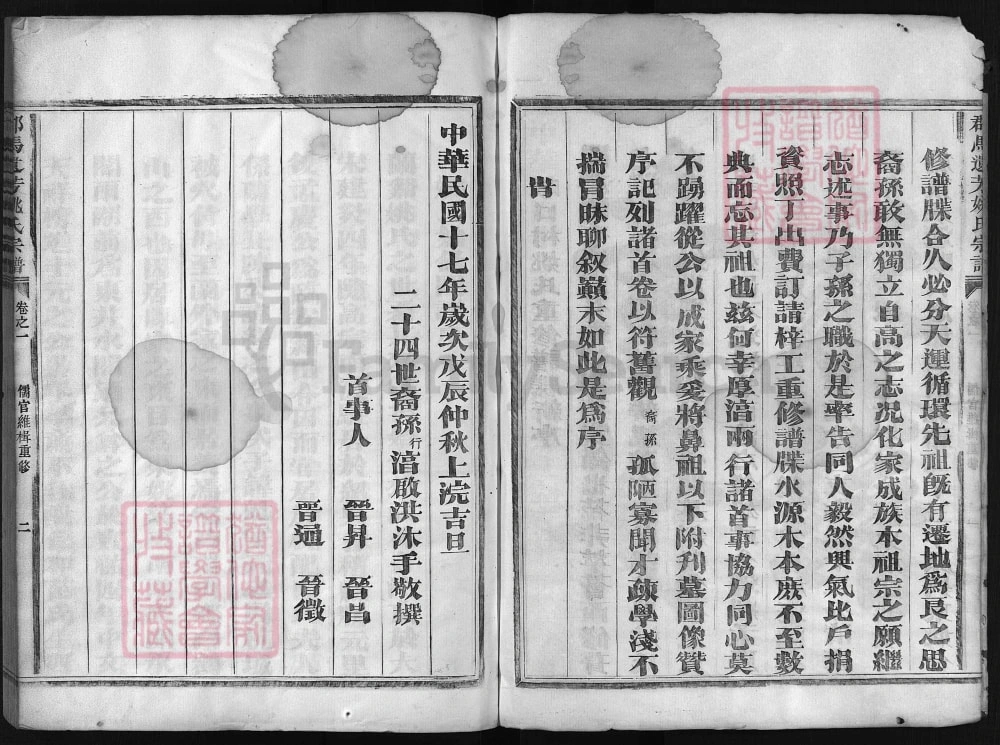 修譜牒合久必分天運循環先祖旣有遷地爲良之思
裔孫敢無獨立自高之志况化家成族本祖宗之願繼
志述事乃子孫之職於是率告同人毅然興氣比戶捐
資照丁出費訂請梓工重修譜牒水源木本庶不至數
典而忘其祖也兹何幸厚湻兩行諸首事協力同心莫
不踴躍從公以成家乘爰將鼻祖以下附刋墓圖像贊
序記列諸首卷以符舊觀裔孫孤陋寡聞才疎學淺不
揣冒昧聊叙巔末如此是爲序
中華民國十七年歲次戊辰仲秋上浣吉旦
二十四世裔孫行湻啟洪沐手敬撰
首事人 晉昇 晉昌
晋通 晉徵
姚氏宗譜 卷之一 儒官維楫重修 二